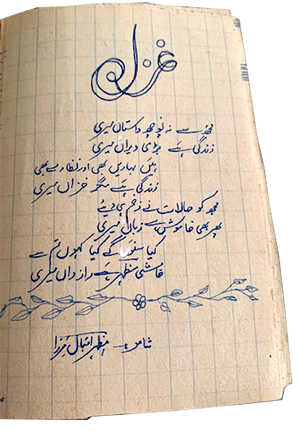 غزل
مجھ سے نہ پوچھ داستاں میری
زندگی ہے بڑی ویراں میری
ہیں بہاریں بھی اور نظارے بھی
زندگی ہے مگر خزاں میری
مجھ کو حالات نے زخم ہی دیے
پھر بھی خاموش ہے زباں میری
کیا سنو گے کیا کہوں تم سے
خامشی مظہر ہے رازداں میری
شاعر: مظہر اقبال مرزا